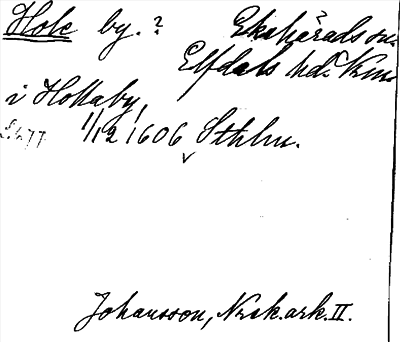 Hole by. ? Ekshärads sn.
Elfdals hd. Krm
i Hollaby,
1/12 1606 Sthlm.
Johansson, Nrsk. ark. II.